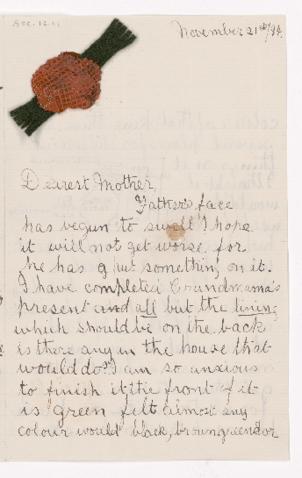 November 21st/94.
Dearest Mother,
Father's face
has begun to swell I hope
it will not get worse for
he has put something on it.
I have completed Grandmama's
present and all but the lining
which should be on the back
is there any in the house that
would do? I am so anxious
to finish it, the front of it
is green felt almost any
colour would black, brown, green or